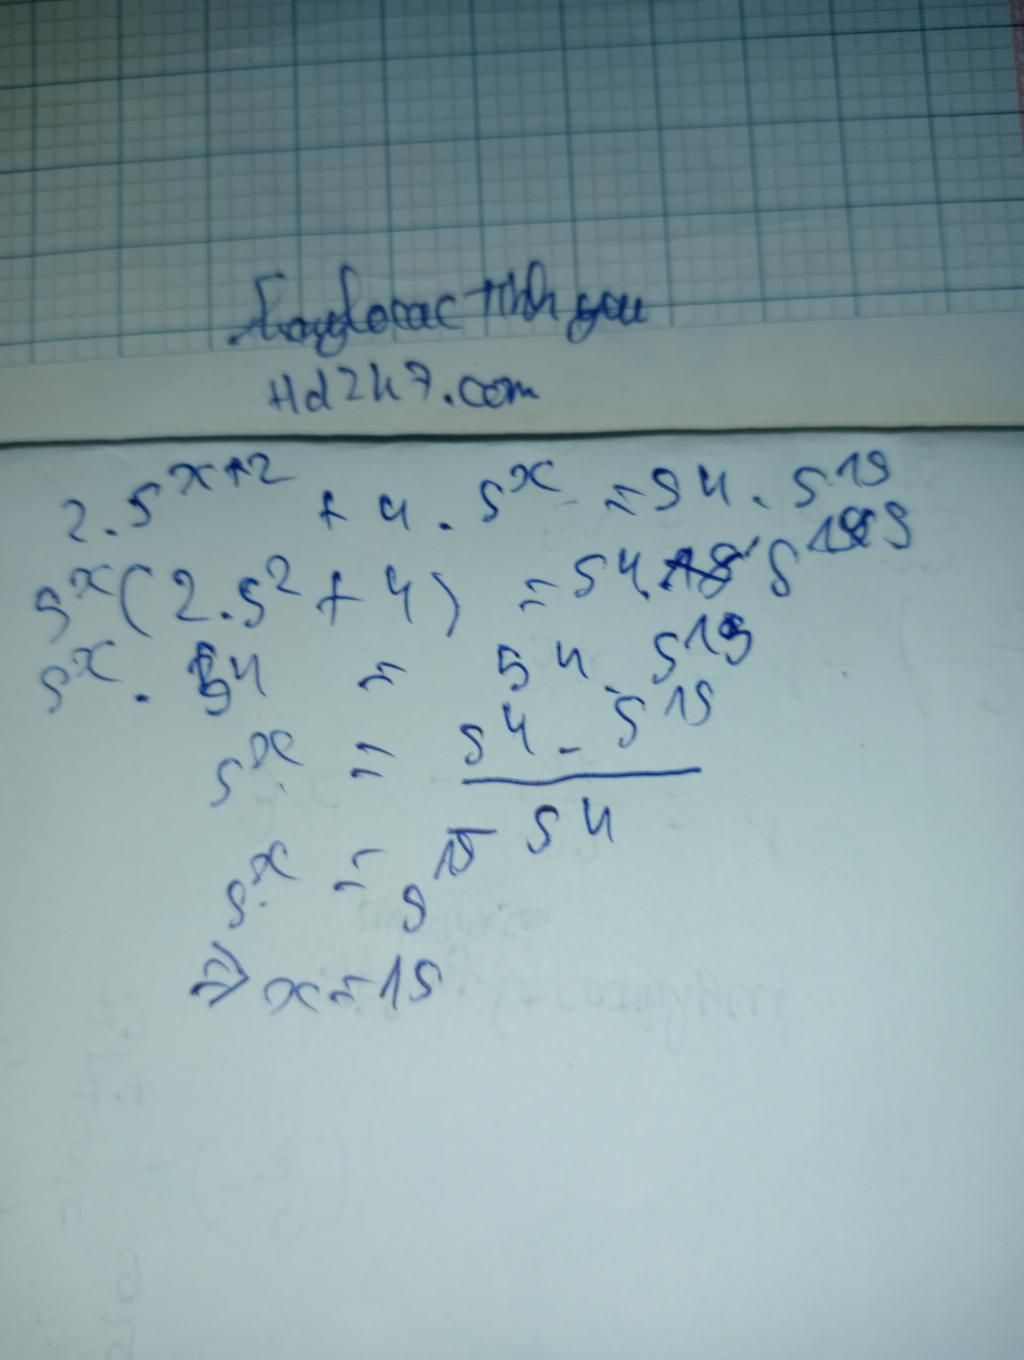 Hd2k7.com
2.5^{x+2} + 4.5^x = 54.5^{19}
5^x(2.5^2 + 4) = 54.5^{19}
5^x.54 = 54.5^{19}
5^x = \frac{54.5^{19}}{54}
5^x = 5^{15}
⇒ x = 15